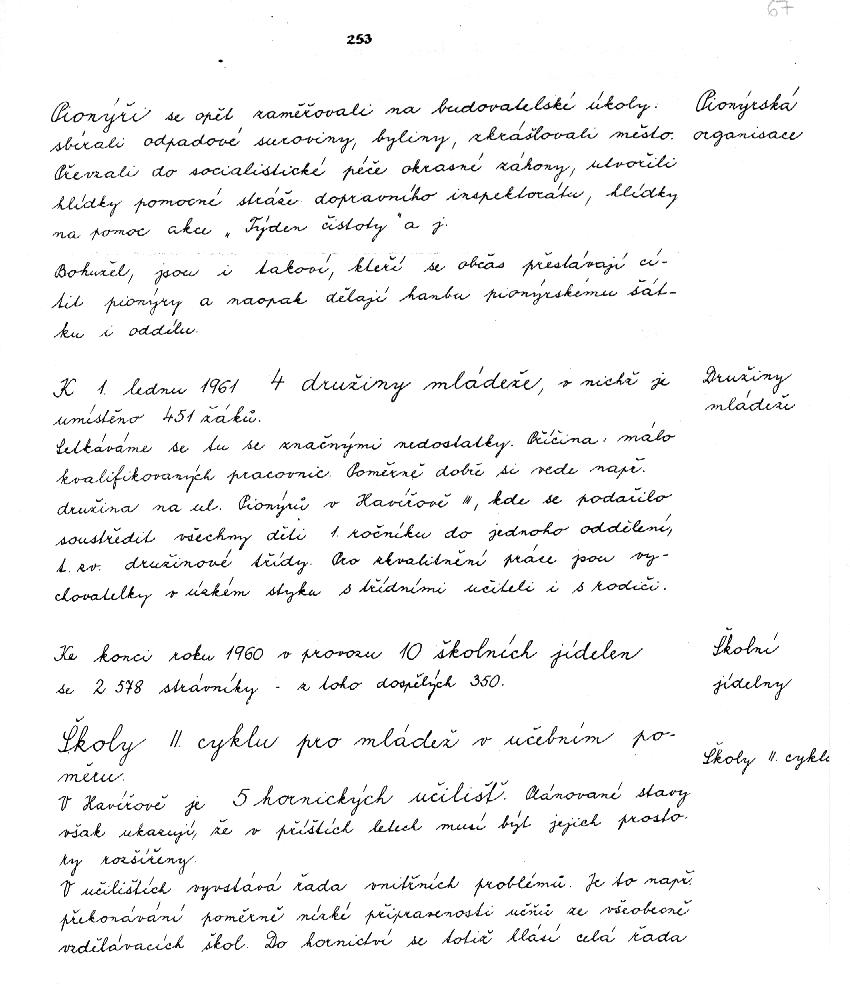 67
253
Pionýři se opět zaměřovali na budovatelské úkoly.
Pionýrská
sbírali odpadové suroviny, byliny, zkrášlovali město.
organisace
Převzali do socialistické péče okrasné záhony, utvořili
hlídky pomocné stráže dopravního inspektorátu, hlídky
na pomoc akce „Týden čistoty" a j.
Bohužel, jsou i takoví, kteří se občas přestávají cí-
tit pionýry a naopak dělají hanbu pionýrskému šát-
ku i oddílu.
K 1. lednu 1961 4 družiny mládeže, v nichž je
Družiny
umístěno 451 žáků.
mládeže
Setkáváme se tu se značnými nedostatky. Příčina: málo
kvalifikovaných pracovnic. Poměrně dobře si vede např.
družina na ul. Pionýrů v Havířově III, kde se podařilo
soustředit všechny děti 1. ročníku do jednoho oddělení,
t. zv. družinové třídy. Pro zkvalitnění práce jsou vy-
chovatelky v úzkém styku s třídními učiteli i s rodiči.
Ke konci roku 1960 v provozu 10 školních jídelen
Školní
se 2 578 strávníky - z toho dospělých 350.
jídelny
Školy II. cyklu pro mládež v učebním po-
Školy II. cyklu
měru.
V Havířově je 5 hornických učilišť. Plánované stavy
však ukazují, že v příštích letech musí být jejich prosto-
ry rozšířeny.
V učilištích vyvstává řada vnitřních problémů. Je to např.
překonávání poměrně nízké připravenosti učňů ze všeobecně
vzdělávacích škol. Do hornictví se totiž hlásí celá řada